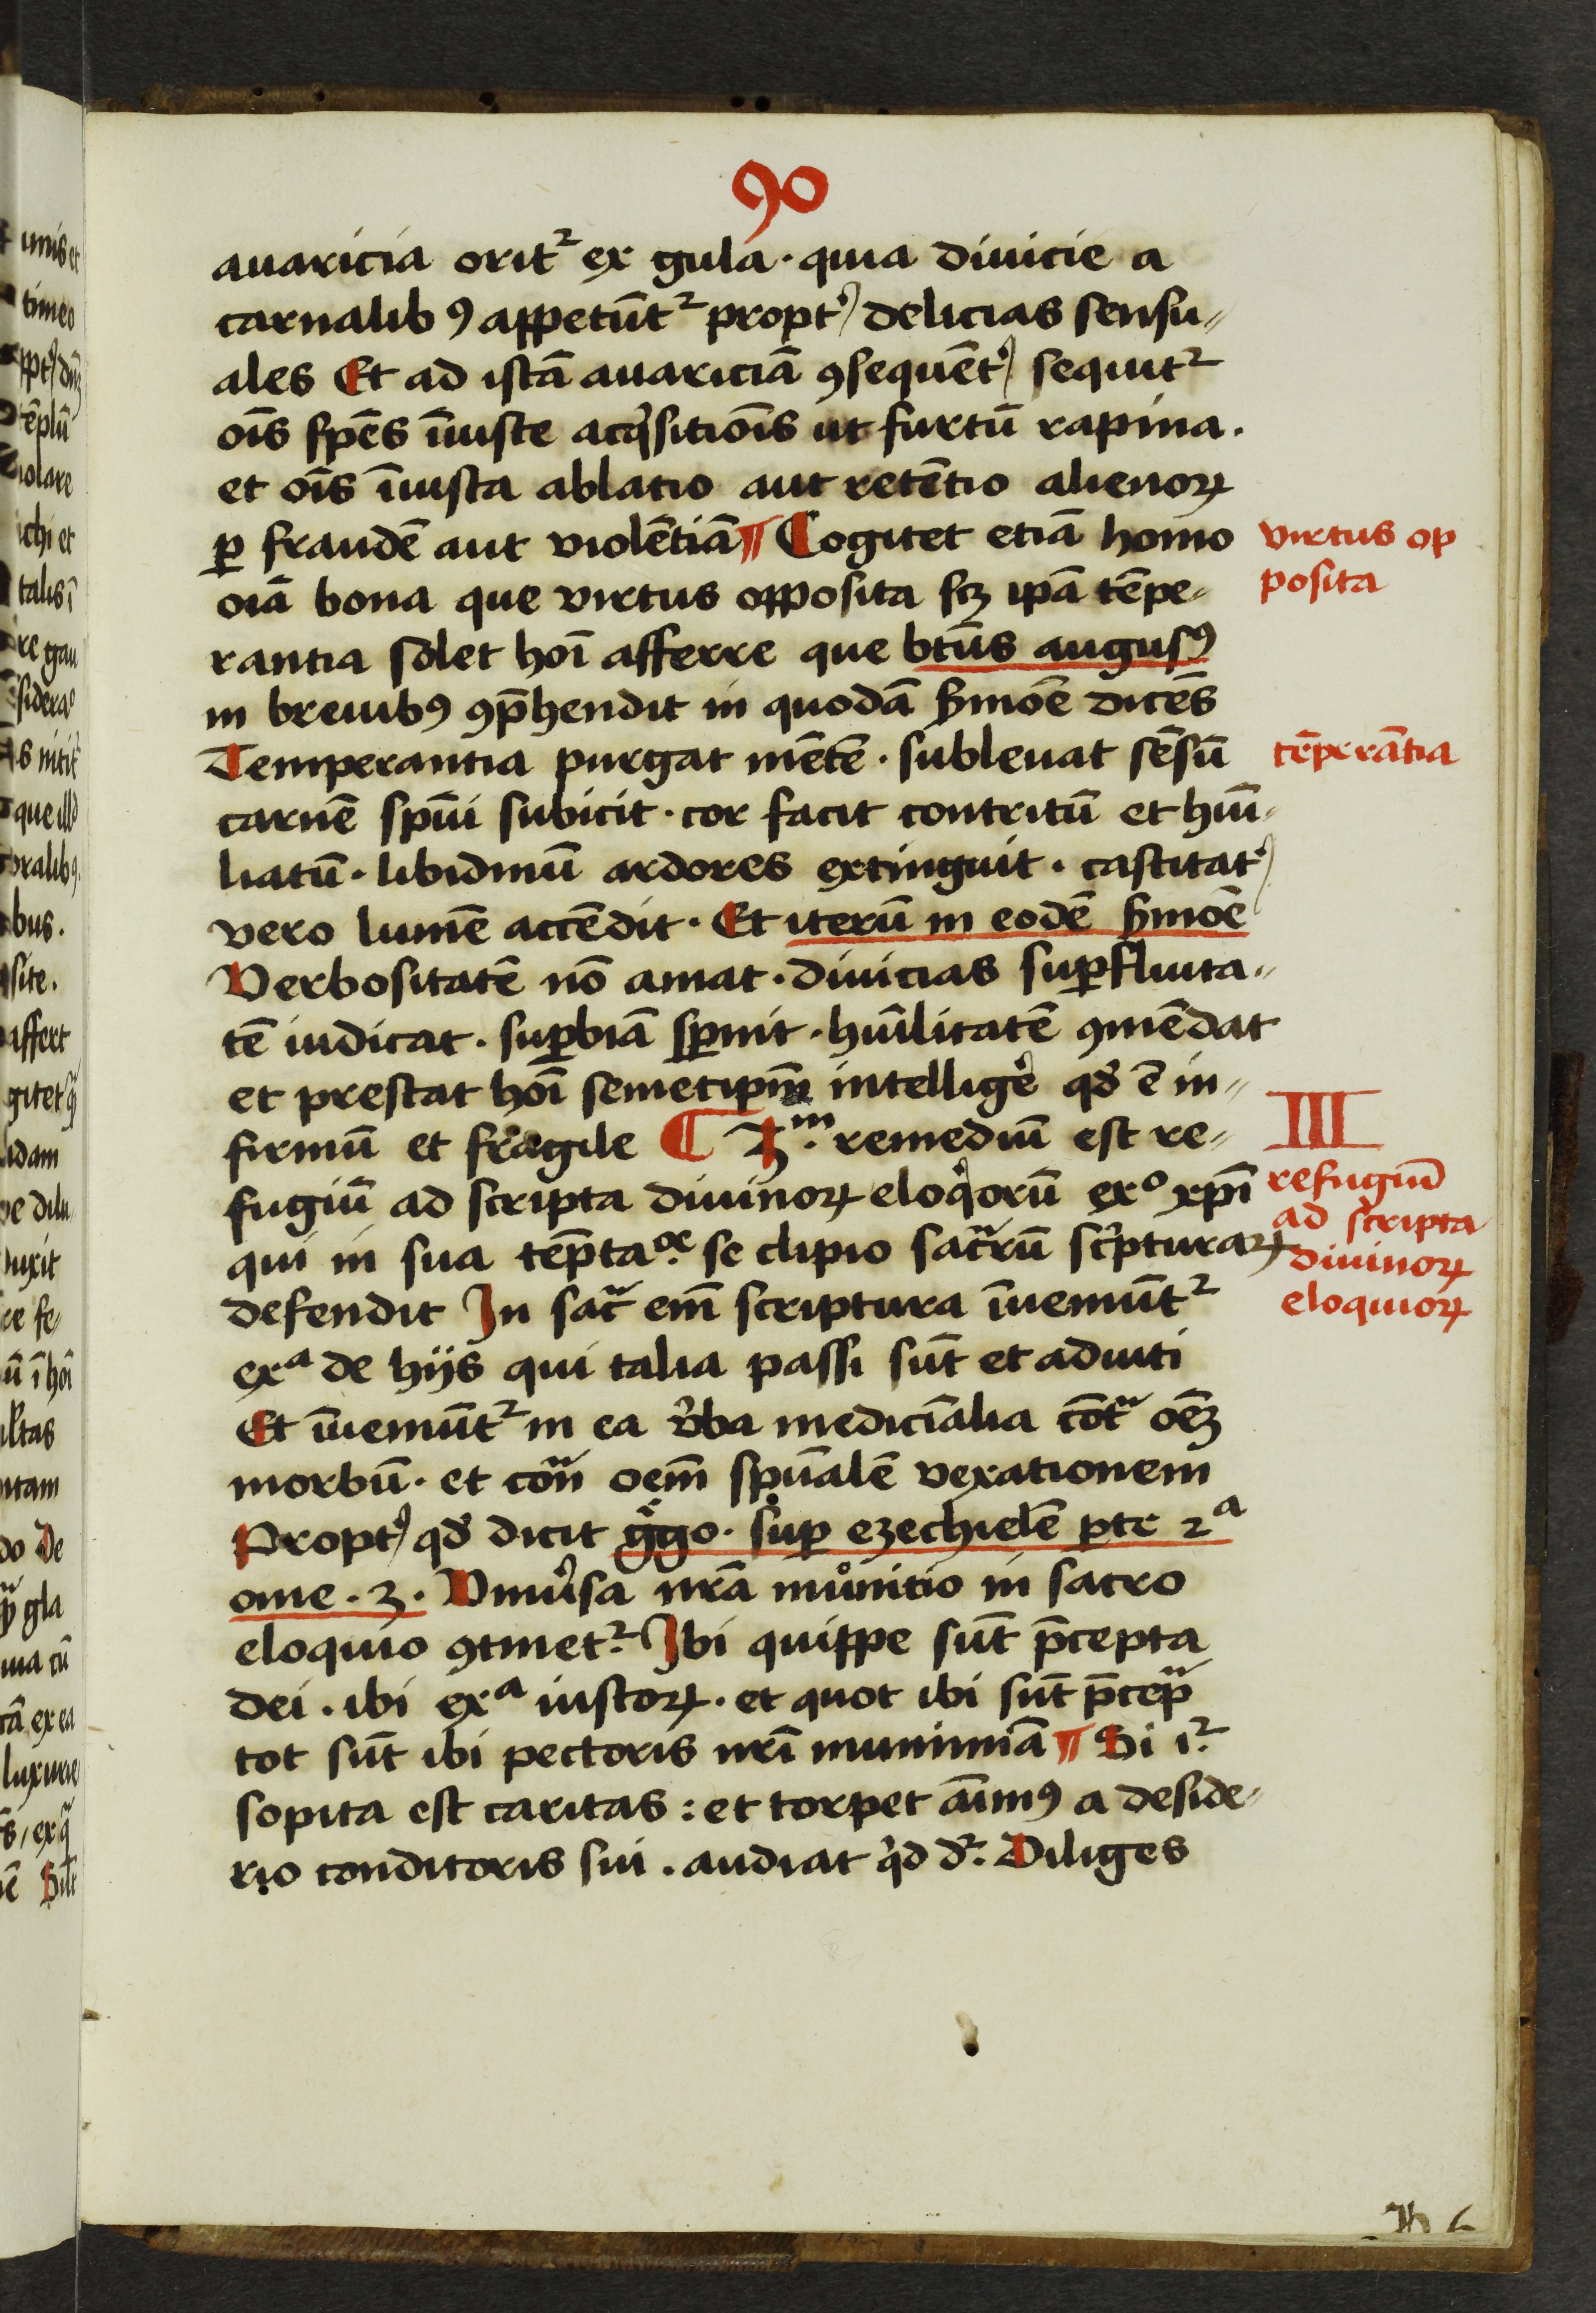 90
auaricia orit² ex gula · quia diuicie a
carnalibꝯ appetūt² propt᷒ delicias sensu„
ales Et ad istā auariciā ꝯsequēt᷒ sequit²
oīs spēs īiuste acq̇sitiōis ut furtū rapina ·
et oīs īiusta ablatio aut retētio alienoꝝ
ꝑ fraudē aut violētiā ¶ Cogitet etiā homo
virtus op
posita
oīa bona que virtus opposita scꝫ ip̄a tēpe„
rantia solet hoī afferre que btūs augusꝰ
in breuibꝰ ꝯp̄hendit in quodā s̄mōe dicēs
Temperantia purgat mētē · subleuat sēsū
tēperātia
carnē spūi subicit · cor facit contritū et hūi„
liatū · libidinū ardores extinguit · castitat᷒
vero lumē accēdit · Et iterū in eodē s̄mōe
Verbositatē nō amat · diuicias suꝑfluita„
tē iudicat · suꝑbiā sꝑnit · hūilitatē ꝯmēdat
et prestat hoī semetip̄m intellige᷒ qd̄ ē in„
firmū et fragile ¶ 3m · remediū est re„
III
fugiū ad scripta diuinoꝝ eloqͥorū exº xp̄i
refugiū
ad scripta
diuinoꝝ
eloquioꝝ
qui in sua tēpta · se clipio sac̄rū sc̄pturaꝝ
defendit In sac̄ em̄ scriptura īueniūt²
exª de hijs qui talia passi sūt et adiuti
Et īueniūt² in ea v̄ba mediciālia cōt oēꝫ
morbū · et cōn oem̄ spūalē vexationem
Propt᷒ qd̄ dicit gͦgo · suꝑ ezechielē ꝑte 2ª
ome · 3 · Vniu᷒sa nr̄a munitio in sacro
eloquio ꝯtinet² · Ibi quippe sūt p̄cepta
dei · ibi exª iustoꝝ · et quot ibi sūt p̄cep
tot sūt ibi pectoris nr̄i munimīa ¶ Si i² ·
sopita est caritas : et torpet aīmꝰ a deside„
rio conditoris sui · audiat qͥd d² · Diliges